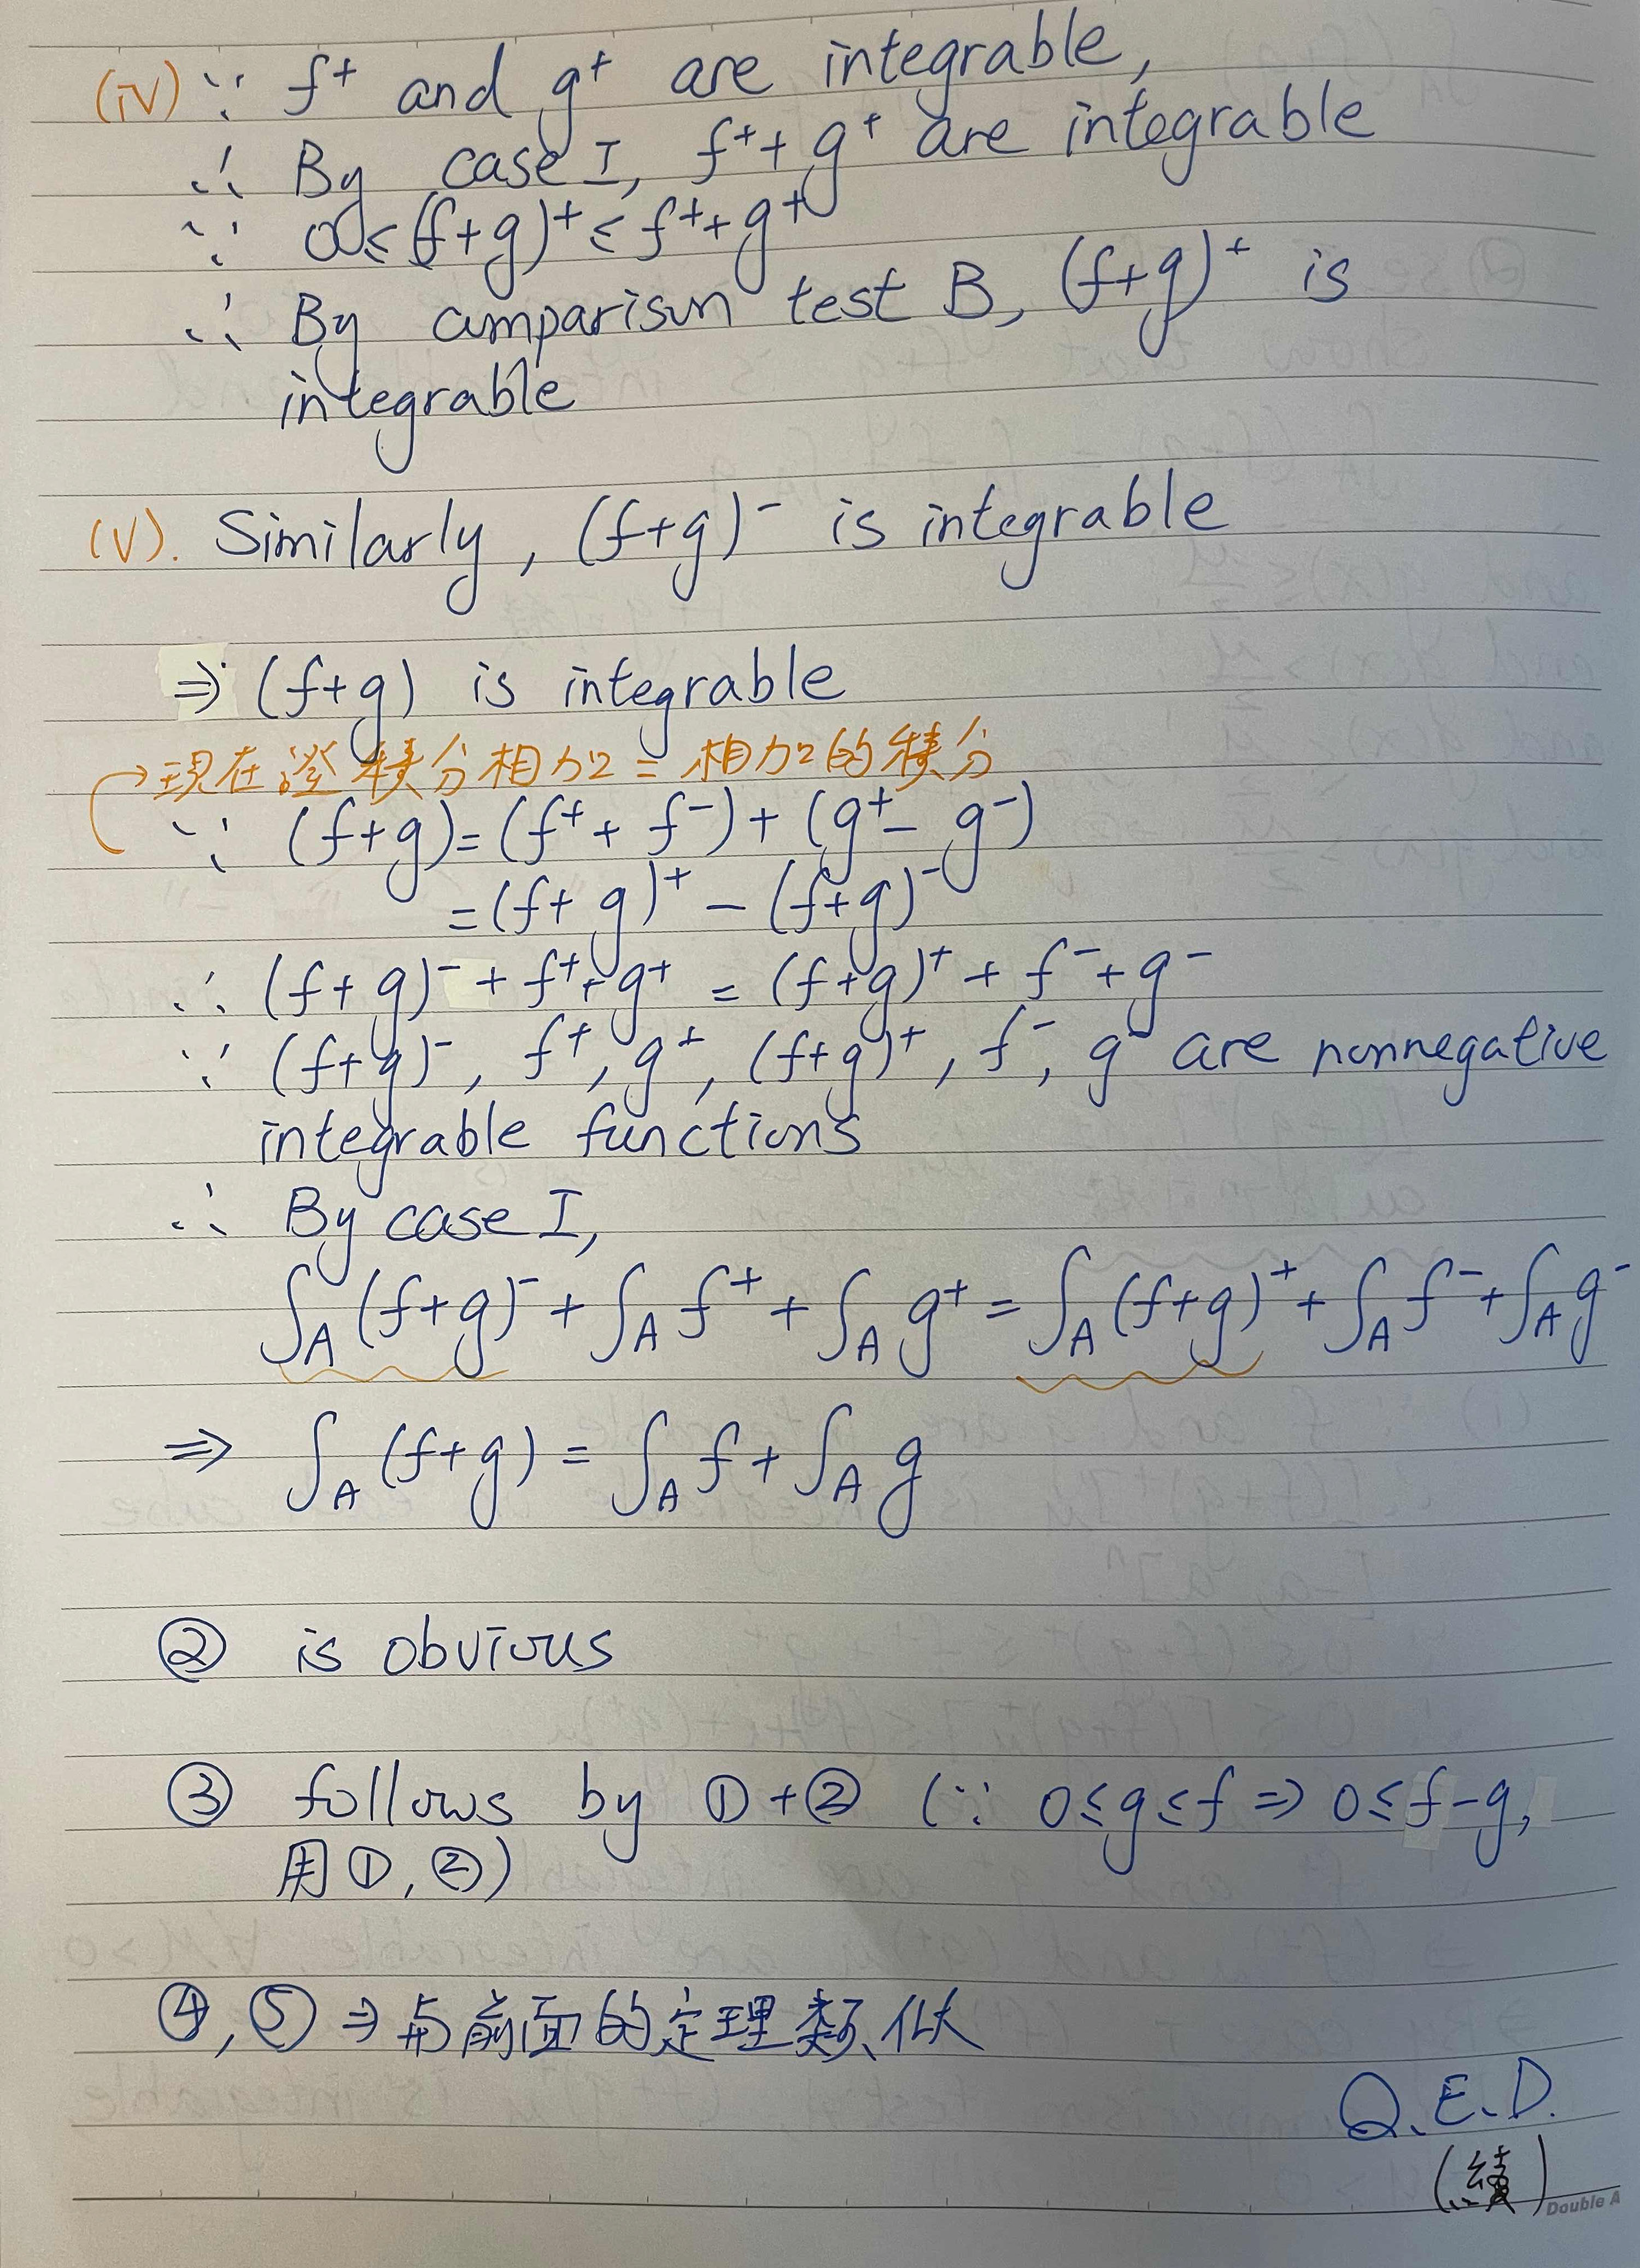 (iv) ∵ f⁺ and g⁺ are integrable,
∴ By case I, f⁺+g⁺ are integrable
∵ 0≤(f+g)⁺≤f⁺+g⁺
∴ By comparison test B, (f+g)⁺ is
integrable
(v). Similarly, (f+g)⁻ is integrable
⇒ (f+g) is integrable
→現在證積分相加=相加的積分
∵ (f+g)=(f⁺+f⁻)+(g⁺-g⁻)
=(f+g)⁺-(f+g)⁻
∴ (f+g)⁻+f⁺+g⁺=(f+g)⁺+f⁻+g⁻
∵ (f+g)⁻, f⁺, g⁺, (f+g)⁺, f⁻, g⁻ are nonnegative
integrable functions
∴ By case I,
∫_A (f+g)⁻+∫_A f⁺+∫_A g⁺=∫_A (f+g)⁺+∫_A f⁻+∫_A g⁻
⇒ ∫_A (f+g)=∫_A f+∫_A g
② is obvious
③ follows by ①+② (∵ 0≤g≤f⇒0≤f-g,
用①,②)
④,⑤⇒与前面的定理类似
Q.E.D.
(續)
Double A